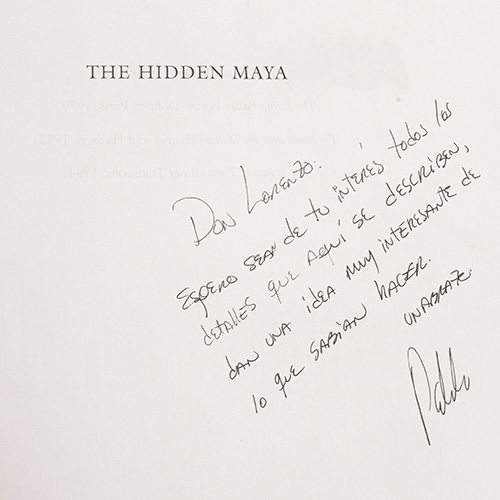 THE HIDDEN MAYA
DON LORENZO:
ESPERO SEAN DE TU INTERÉS TODOS LOS
DETALLES QUE AQUÍ SE DESCRIBEN,
DAN UNA IDEA MUY INTERESANTE DE
LO QUE SABIAN HACER.
UNABRAZO.
Pablo